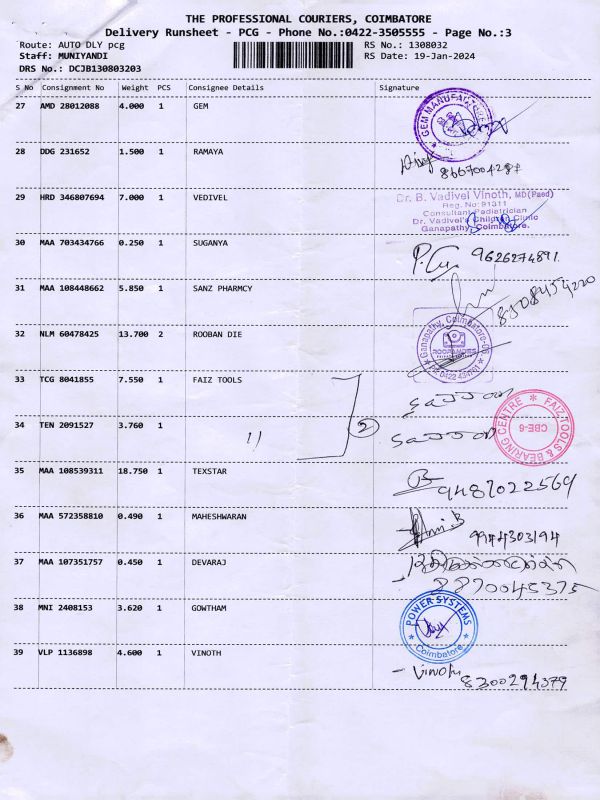 THE PROFESSIONAL COURIERS, COIMBATORE
Delivery Runsheet - PCG - Phone No.:0422-3505555 - Page No.:3
Route: AUTO DLY pcg RS No.: 1308032
Staff: MUNIYANDI RS Date: 19-Jan-2024
DRS No.: DCJB130803203
S No Consignment No Weight PCS Consignee Details Signature
27 AMD 28012088 4.000 1 GEM
GEM MANUFACTURE
28 DDG 231652 1.500 1 RAMAYA
8667004287
29 HRD 346807694 7.000 1 VEDIVEL
Dr. B. Vadivel Vinoth, MD(Paed)
Reg. No:91311
Consultant Padiatrician
Dr. Vadivel's Children Clinic
Ganapathy, Coimbatore.
30 MAA 703434766 0.250 1 SUGANYA
9626274891.
31 MAA 108448662 5.850 1 SANZ PHARMCY
8508454220
32 NLM 60478425 13.700 2 ROOBAN DIE
Ganapathy, Coimbatore-06
33 TCG 8041855 7.550 1 FAIZ TOOLS
34 TEN 2091527 3.760 1 11 2
FAIZ TOOLS & BEARING CENTRE
CBE-6
35 MAA 108539311 18.750 1 TEXSTAR
9487022569
36 MAA 572358810 0.490 1 MAHESHWARAN
9944303194
37 MAA 107351757 0.450 1 DEVARAJ
8870045375
38 MNI 2408153 3.620 1 GOWTHAM
POWER SYSTEMS
Coimbatore.
39 VLP 1136898 4.600 1 VINOTH
Vinoth
8300294379